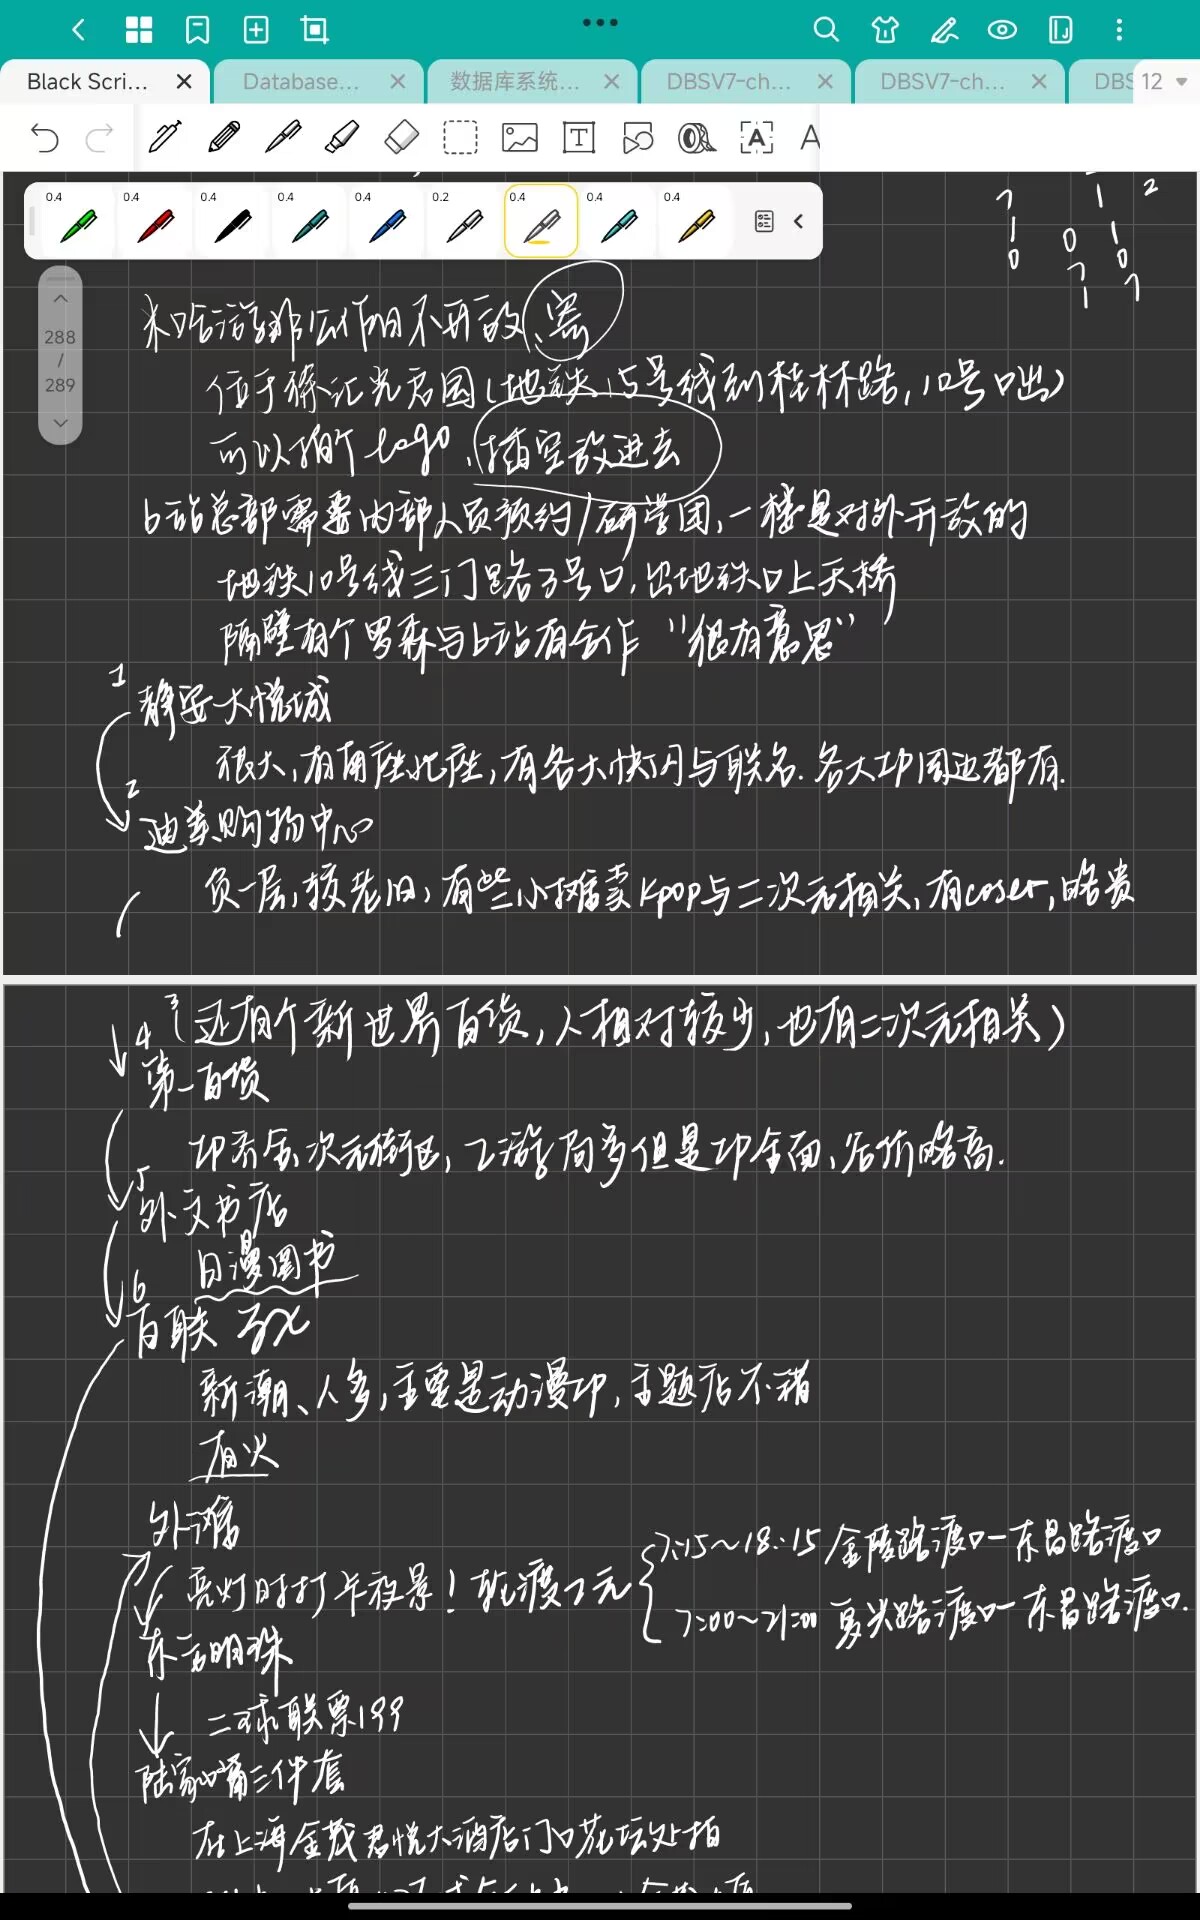 Black Scri...
Database...
数据库系统...
DBSV7-ch...
DBSV7-ch...
DBS
12
T
A
A
0.4 0.4 0.4 0.4 0.4 0.2 0.4 0.4 0.4
288
/
289
1 2
1 0 1
0 7 0
1 7
米哈游非工作日不开放,寄
位于徐汇光启园(地铁15号线到桂林路,10号口出)
可以拍个logo,插空放进去
b站总部需要内部人员预约/研学团,一楼是对外开放的
地铁10号线三门路3号口,出地铁口上天桥
隔壁有个罗森与b站有合作"很有意思"
1
静安大悦城
很大,有南座北座,有各大快闪与联名.各大IP周边都有.
2
迪美购物中心
负一层,较老旧,有些小摊卖kpop与二次元相关,有coser,略贵
3
(还有个新世界百货,人相对较少,也有二次元相关)
4
第一百货
IP齐全,次元街区,乙游居多但是IP全面,店价略高.
5
外文书店
日漫图书
6
百联ZX
新潮、人多,主要是动漫IP,主题店不错
有火
外滩
亮灯时打卡夜景!轮渡2元
7:15~18:15 金陵路渡口—东昌路渡口
7:00~21:00 复兴路渡口—东昌路渡口.
东方明珠
二球联票199
陆家嘴三件套
在上海金茂君悦大酒店门口花坛处拍